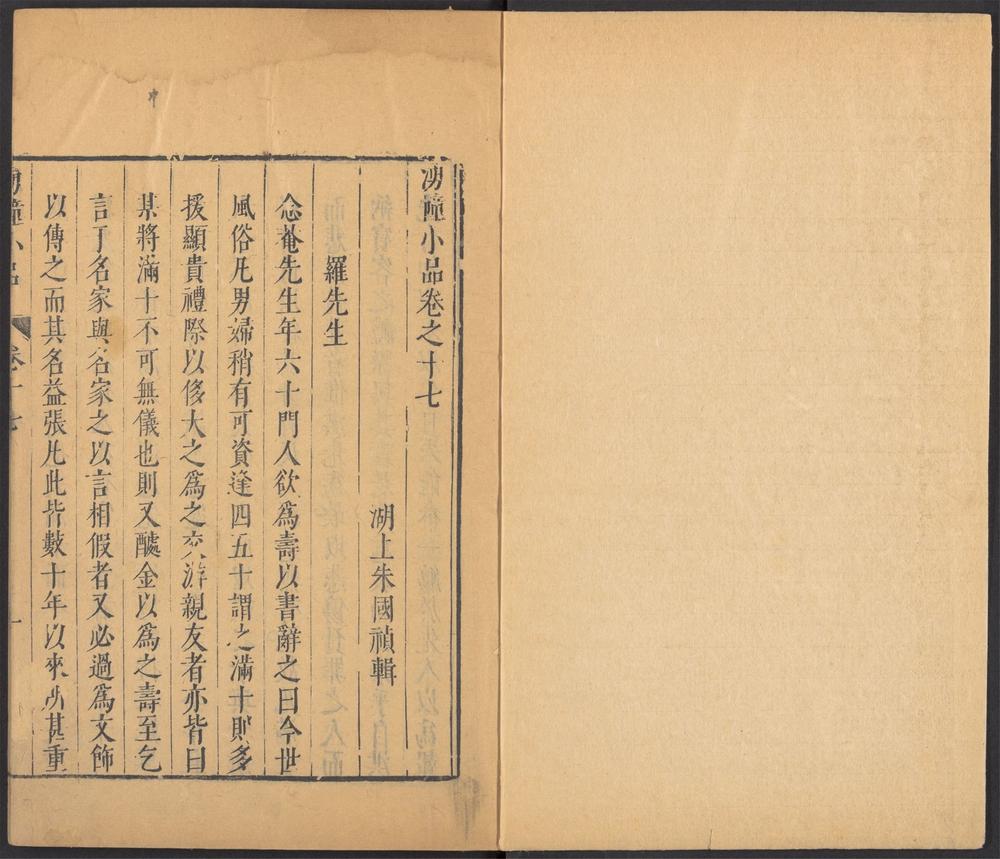 湧幢小品卷之十七
湖上朱國禎輯
羅先生
念菴先生年六十門人欲爲壽以書辭之曰今世
風俗凡男婦稍有可資逢四五十謂之滿十則多
援顯貴禮際以侈大之爲之交游親友者亦皆曰
某將滿十不可無儀也則又醵金以爲之壽至乞
言于名家與名家之以言相假者又必過爲文飾
以傳之而其名益張凡此皆數十年以來所甚重
湧幢小品 卷十七 一